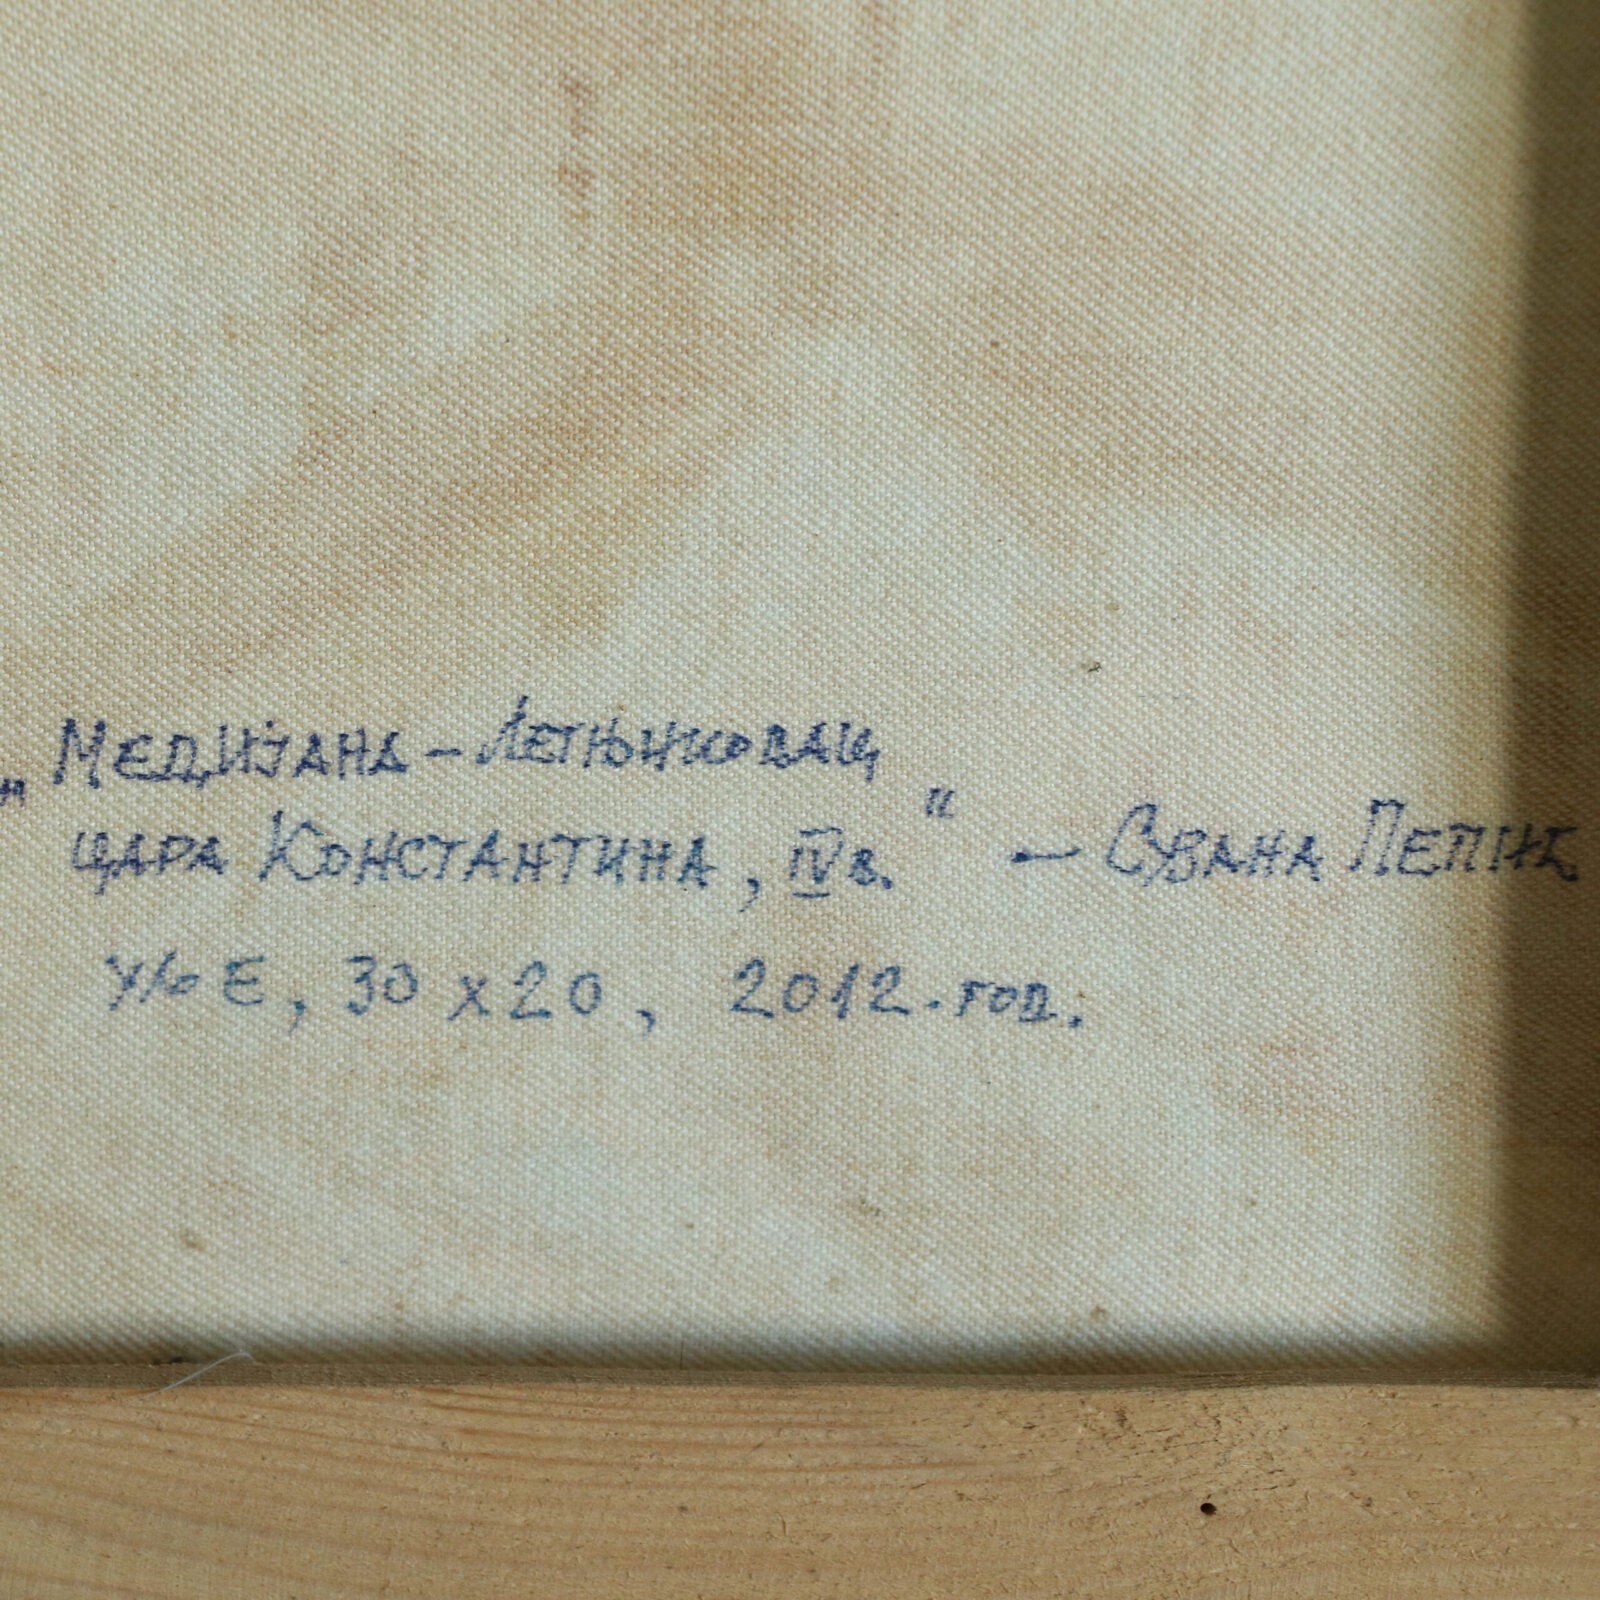 „Медијана – Летњиковац
цара Константина, IV в.“ – Сувана
30 x 20, 2012. год.